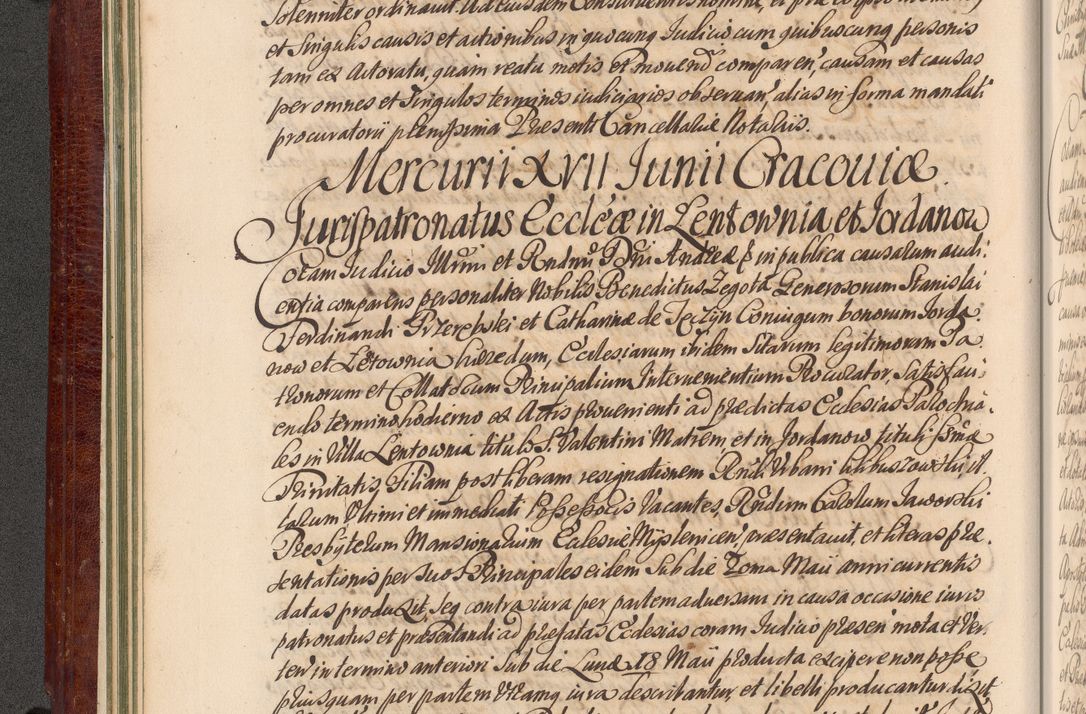 Solenniter ordinavit. Ad eiusdem Constituentis nomine, et pro
et Singulis causis et actionibus in quocunq Iudicio cum quibuscunq personis
tam ex Actoratu, quam reatu motis, et movend comparen, causam et causas
per omnes et Singulos terminos iudiciarios observan, alias in forma mandati
procuratorii plenissima Praesenti Cancellariae Notariis.
Mercurii XVII Iunii Cracoviæ
Iurispatronatus Eccleæ in Lentownia et Iordanow
Coram Iudicio Illrmi et Rndmi Dni Andreæ in publica causarum audi:
entia comparens personaliter Nobilis Benedictus Zegota Generosorum Stanislai
Ferdinandi Przerębski et Catharinæ de Tęczyn Coniugum bonorum Iorda:
now et Lętownia hæredum, Ecclesiarum ibidem Sitarum legitimorum Pa
tronorum et Collatorum Principalium Intervenientium Procurator, Satisfaci:
endo termino hodierno ex Actis provenienti ad prædictas Ecclesias Parochia:
les in Villa Lentownia tituli S. Valentini Matrem, et in Jordanow tituli Ssmæ
Trinitatis, Filiam post liberam resignationem Rndi Urbani il
larum Ultimi et immediati Possessoris Vacantes, Rndum Carolum Jaworski
Presbyterum Mansionarium Ecclesiæ Myslenicen, præsentavit, et literas præ:
sentationis per Suos Principales eidem Sub die 7oma Maii anni currentis
datas produxit, Seq contra iura per partem adversam in causa occasione iuris
patronatus et præsentandi ad præfatas Ecclesias coram Iudicio præsen mota et Ver:
ten in termino anteriori Sub die Lunæ 18 Maii producta excipere non posse
priusquam per partem Utramq iura describantur, et libelli producantur dixit